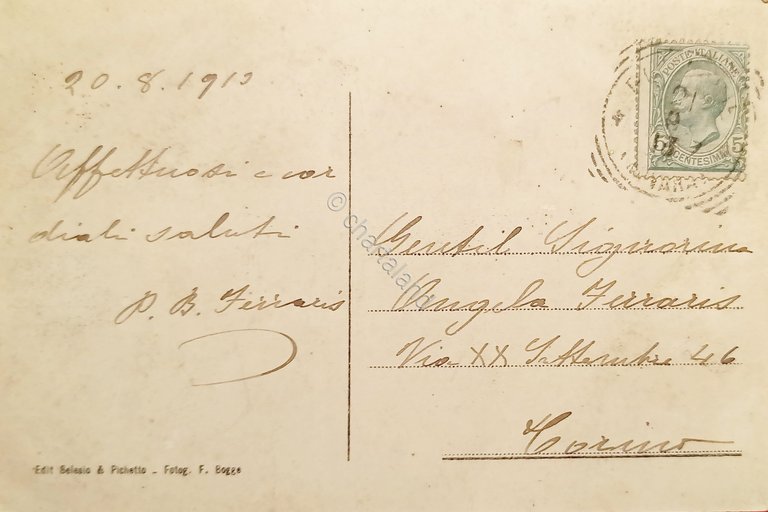 20.8.1910
Affettuosi e cor
diali saluti
P. B. Ferraris
Edit Selesio & Pichetto - Fotog. F. Bogge
POSTE ITALIANE
CENTESIMI 5
Gentil Signorina
Angela Ferraris
Via XX Settembre 46
Torino
© chartaland